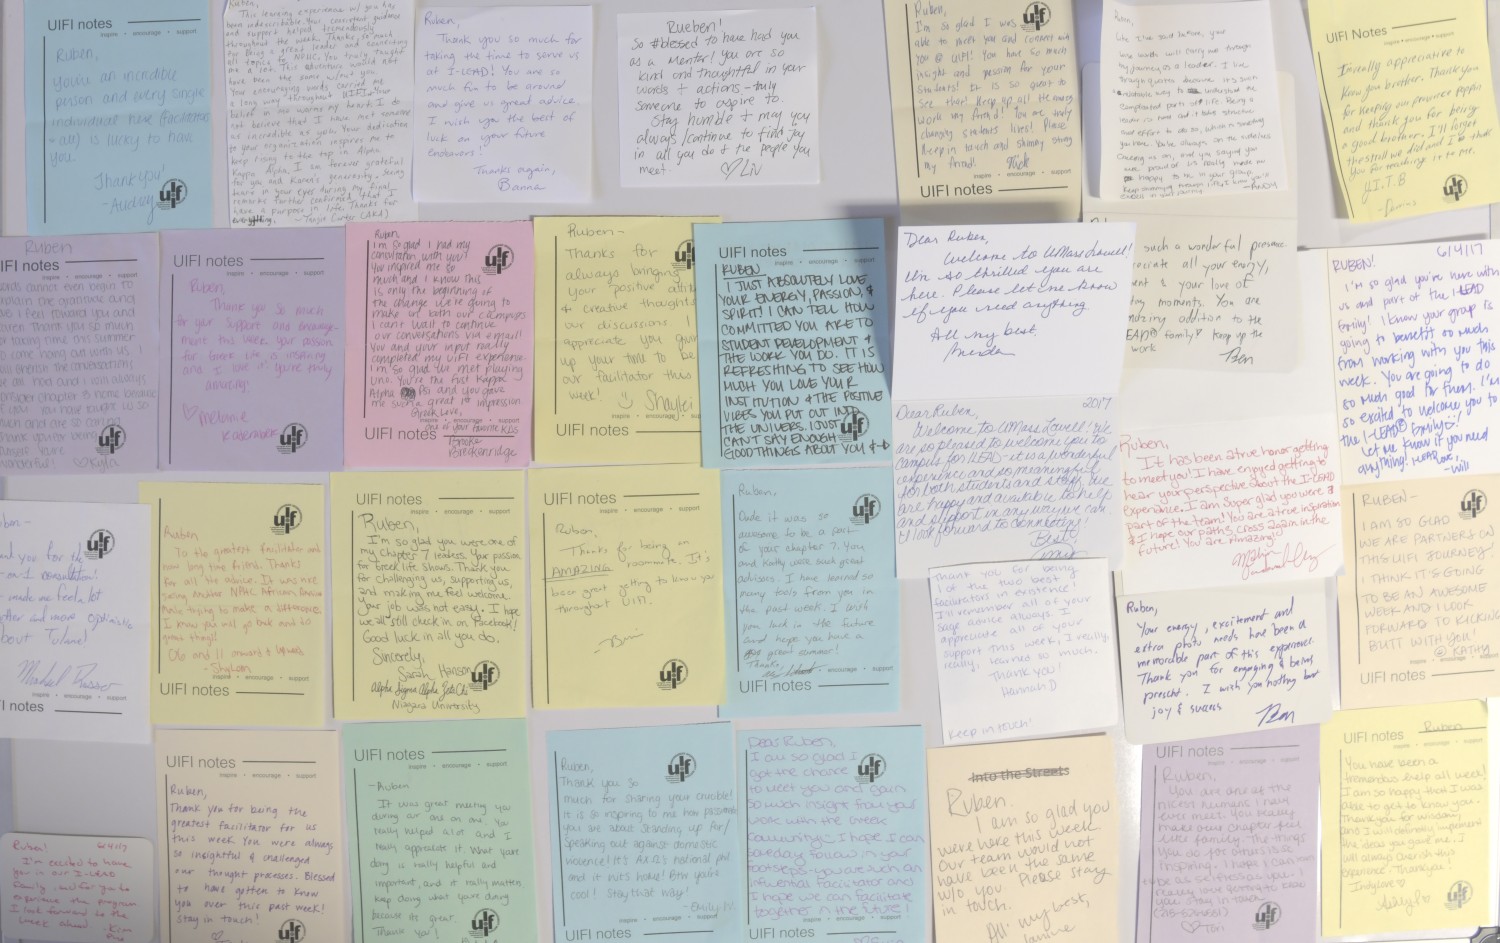 UIFI Notes
inspire • encourage • support
Ruben,
you're an incredible
person and every single
individual here (facilitator
+ all) is lucky to have
you.
Thank you!
- Audrey
uifi
This learning experience w/ you has
been indescribable. Your consistent guidance
and support helped tremendously
throughout the week. Thanks so much
for being a great leader and connecting
all topics to NPHC. You truly taught
me a lot. This adventure would not
have been the same w/out you.
Your encouraging words carried me
a long way throughout UIFI. Your
belief in me warms my heart. I do
not believe that I have met someone
as incredible as you. Your dedication
to your organization inspires me to
keep rising to the top in Alpha
Kappa Alpha. I am forever grateful
for you and Karen's generosity. Seeing
tears in your eyes during my final
remarks further confirmed that I
have a purpose in life. Thanks for
everything.
Carter (AKA)
Ruben,
Thank you so much for
taking the time to serve us
at I-LEAD! You are so
much fun to be around
and give us great advice.
I wish you the best of
luck on your future
endeavors!
Thanks again,
Rueben!
So #blessed to have had you
as a mentor! You are so
kind and thoughtful in your
words + actions - truly
someone to aspire to.
Stay humble + may you
always/continue to find joy
in all you do & the people you
meet.
♡ Liv
Ruben,
I'm so glad I was
able to meet you and connect with
you @ UIFI! You have so much
insight and passion for your
students! It is so great to
see that! Keep up all the amazing
work my friend! You are truly
changing students lives! Please
keep in touch and shining strong
my friend!
inspire • encourage • support
UIFI notes
UIFI Notes
inspire • encourage • support
I really appreciative to
know you brother. Thank you
for keeping our province poppin
and thank you for being
a good brother. I'll forget
Y.I.T.B
Ruben
UIFI notes
inspire • encourage • support
Words cannot even begin to
explain the gratitude and
love I feel toward you and
Karen. Thank you so much
for taking time out this summer
to come hang out with us. I
will cherish the conversations
we all had and I will always
♡ Kyla
UIFI notes
inspire • encourage • support
Ruben,
Thank you so much
for your support and encourage-
ment this week. Your passion
for Greek life is inspiring
and I love it! You're truly
amazing!
♡ Melanie
Ruben,
I'm so glad I had my
consultation with you!
You inspired me so
much and I know this
is only the beginning of
the change we're going to
make on both our campuses
I can't wait to continue
our conversations via email!
You and your input really
completed my UIFI experience.
I'm so glad we met playing
Uno. You're the first Kappa
Alpha Psi and you gave
me such a great 1st impression
Greek Love,
one of your favorite KDs
Brooke
Breckenridge
inspire • encourage • support
UIFI notes
Ruben-
Thanks for
always bringing
your positive attitude
& creative thoughts
our discussions. I
appreciate you giving
up your time to be
our facilitator this
week! ☺ Shaylei
inspire • encourage • support
UIFI notes
UIFI notes
inspire • encourage • support
RUBEN,
I JUST ABSOLUTELY LOVE
YOUR ENERGY, PASSION, &
SPIRIT! I CAN TELL HOW
COMMITTED YOU ARE TO
STUDENT DEVELOPMENT &
THE WORK YOU DO. IT IS
REFRESHING TO SEE HOW
MUCH YOU LOVE YOUR
INSTITUTION & THE POSITIVE
VIBES YOU PUT OUT INTO
THE UNIVERS. I JUST
CAN'T SAY ENOUGH
GOOD THINGS ABOUT YOU
Dear Ruben,
Welcome to UMass Lowell!
I'm so thrilled you are
here. Please let me know
if you need anything.
All my best,
such a wonderful presence.
all your energy,
& your love of
moments. You are
addition to the
family! Keep up the
work
Ben
6/4/17
RUBEN!
I'M so glad you're here with
us and part of the I-LEAD
family! I know your group is
going to benefit so much
from working with you this
week. You are going to do
so much good for them. I'm
so excited to welcome you to
the I-LEAD® family!!
Let me know if you need
anything! ILEAD LOVE,
-Will
2017
Dear Ruben,
Welcome to UMass Lowell! We
are so pleased to welcome you to
campus for ILEAD - it is a wonderful
experience and so meaningful
for both students and staff. We
are happy and available to help
and support in any way we can
+ look forward to connecting!
Best!
Ruben,
It has been a true honor getting
to meet you! I have enjoyed getting to
hear your perspective about the I-LEAD
Experience. I am super glad you were a
part of the team! You are a true inspiration
& I hope our paths cross again in the
future! You are Amazing!
you for the
-on-1 consultation!
made me feel a lot
better and more optimistic
about Tulane!
inspire • encourage • support
UIFI notes
Ruben
To the greatest facilitator and
now long time friend. Thanks
for all the advice. It was nice
seeing another NPHC African American
Male trying to make a difference.
I know you will go back and do
great things!!
inspire • encourage • support
UIFI notes
UIFI notes
inspire • encourage • support
Ruben,
I'm so glad you were one of
my Chapter 7 leaders. Your passion
for Greek life shows. Thank you
for challenging us, supporting us,
and making me feel welcome.
Your job was not easy. I hope
we all still check in on Facebook!
Good luck in all you do,
Sincerely,
Sarah Hanson
Alpha Sigma Alpha
Niagara University
UIFI notes
inspire • encourage • support
Ruben,
Thanks for being an
AMAZING roommate. It's
been great getting to know you
throughout UIFI.
Ruben,
Dude it was so
awesome to be a part
of your chapter 7. You
and Kathy were such great
advisors. I have learned so
many tools from you in
the past week. I wish
you luck in the future
and hope you have a
great summer!
Thanks,
inspire • encourage • support
UIFI notes
Thank you for being
1 of the two best
facilitators in existence!
I'll remember all of your
sage advice always. I
appreciate all of your
support this week, I really,
really, learned so much.
Thank you!
Hannah D
Keep in touch!
Ruben,
Your energy, excitement and
extra photo needs have been a
memorable part of this experience.
Thank you for engaging & being
present. I wish you nothing but
joy & success
Ben
RUBEN-
I AM SO GLAD
WE ARE PARTNERS ON
THIS UIFI JOURNEY!
I THINK IT'S GOING
TO BE AN AWESOME
WEEK AND I LOOK
FORWARD TO KICKING
BUTT WITH YOU!
☺ KATHY
inspire • encourage • support
UIFI notes
Ruben! 6/4/17
I'm excited to have
you in our I-LEAD
family.
experience the program
I look forward to the
week ahead. -Kim
UIFI notes
inspire • encourage • support
Ruben,
Thank you for being the
greatest facilitator for us
this week. You were always
so insightful & challenged
our thought processes. Blessed
to have gotten to know
you over this past week!
Stay in touch!
UIFI notes
inspire • encourage • support
-Ruben
It was great meeting you
during our one on one. You
really helped a lot and I
really appreciate it. What you're
doing is really helpful and
important, and it really matters
keep doing what you're doing
because its great.
Thank you!
Ruben,
Thank you so
much for sharing your crucible!
It is so inspiring to me how passionate
you are about standing up for/
speaking out against domestic
violence!
and it hits home!
cool! Stay that way!
-Emily W.
inspire • encourage • support
UIFI notes
Dear Ruben,
I am so glad I
got the chance
to meet you and gain
so much insight from your
work with the Greek
Community. I hope I can
someday follow in your
footsteps - you are such an
influential facilitator and
I hope we can facilitate
together in the future!
inspire • encourage • support
UIFI notes
Into the Streets
Ruben.
I am so glad you
were here this week.
Our team would not
have been the same
w/o you. Please stay
in touch.
All my best,
UIFI notes
inspire • encourage • support
Ruben,
You are one of the
nicest humans I have
ever met. You really
make our chapter feel
like family. The things
you do for others is so
inspiring. I hope I can someday
be as selfless as you! I
really love getting to know
you. Stay in touch
♡ Tori
UIFI notes
Ruben
inspire • encourage • support
You have been a
tremendous help all week!
I am so happy that I was
able to get to know you.
Thank you for wisdom,
and I will definitely implement
the ideas you gave me. I
will always cherish this
experience. Thank you!